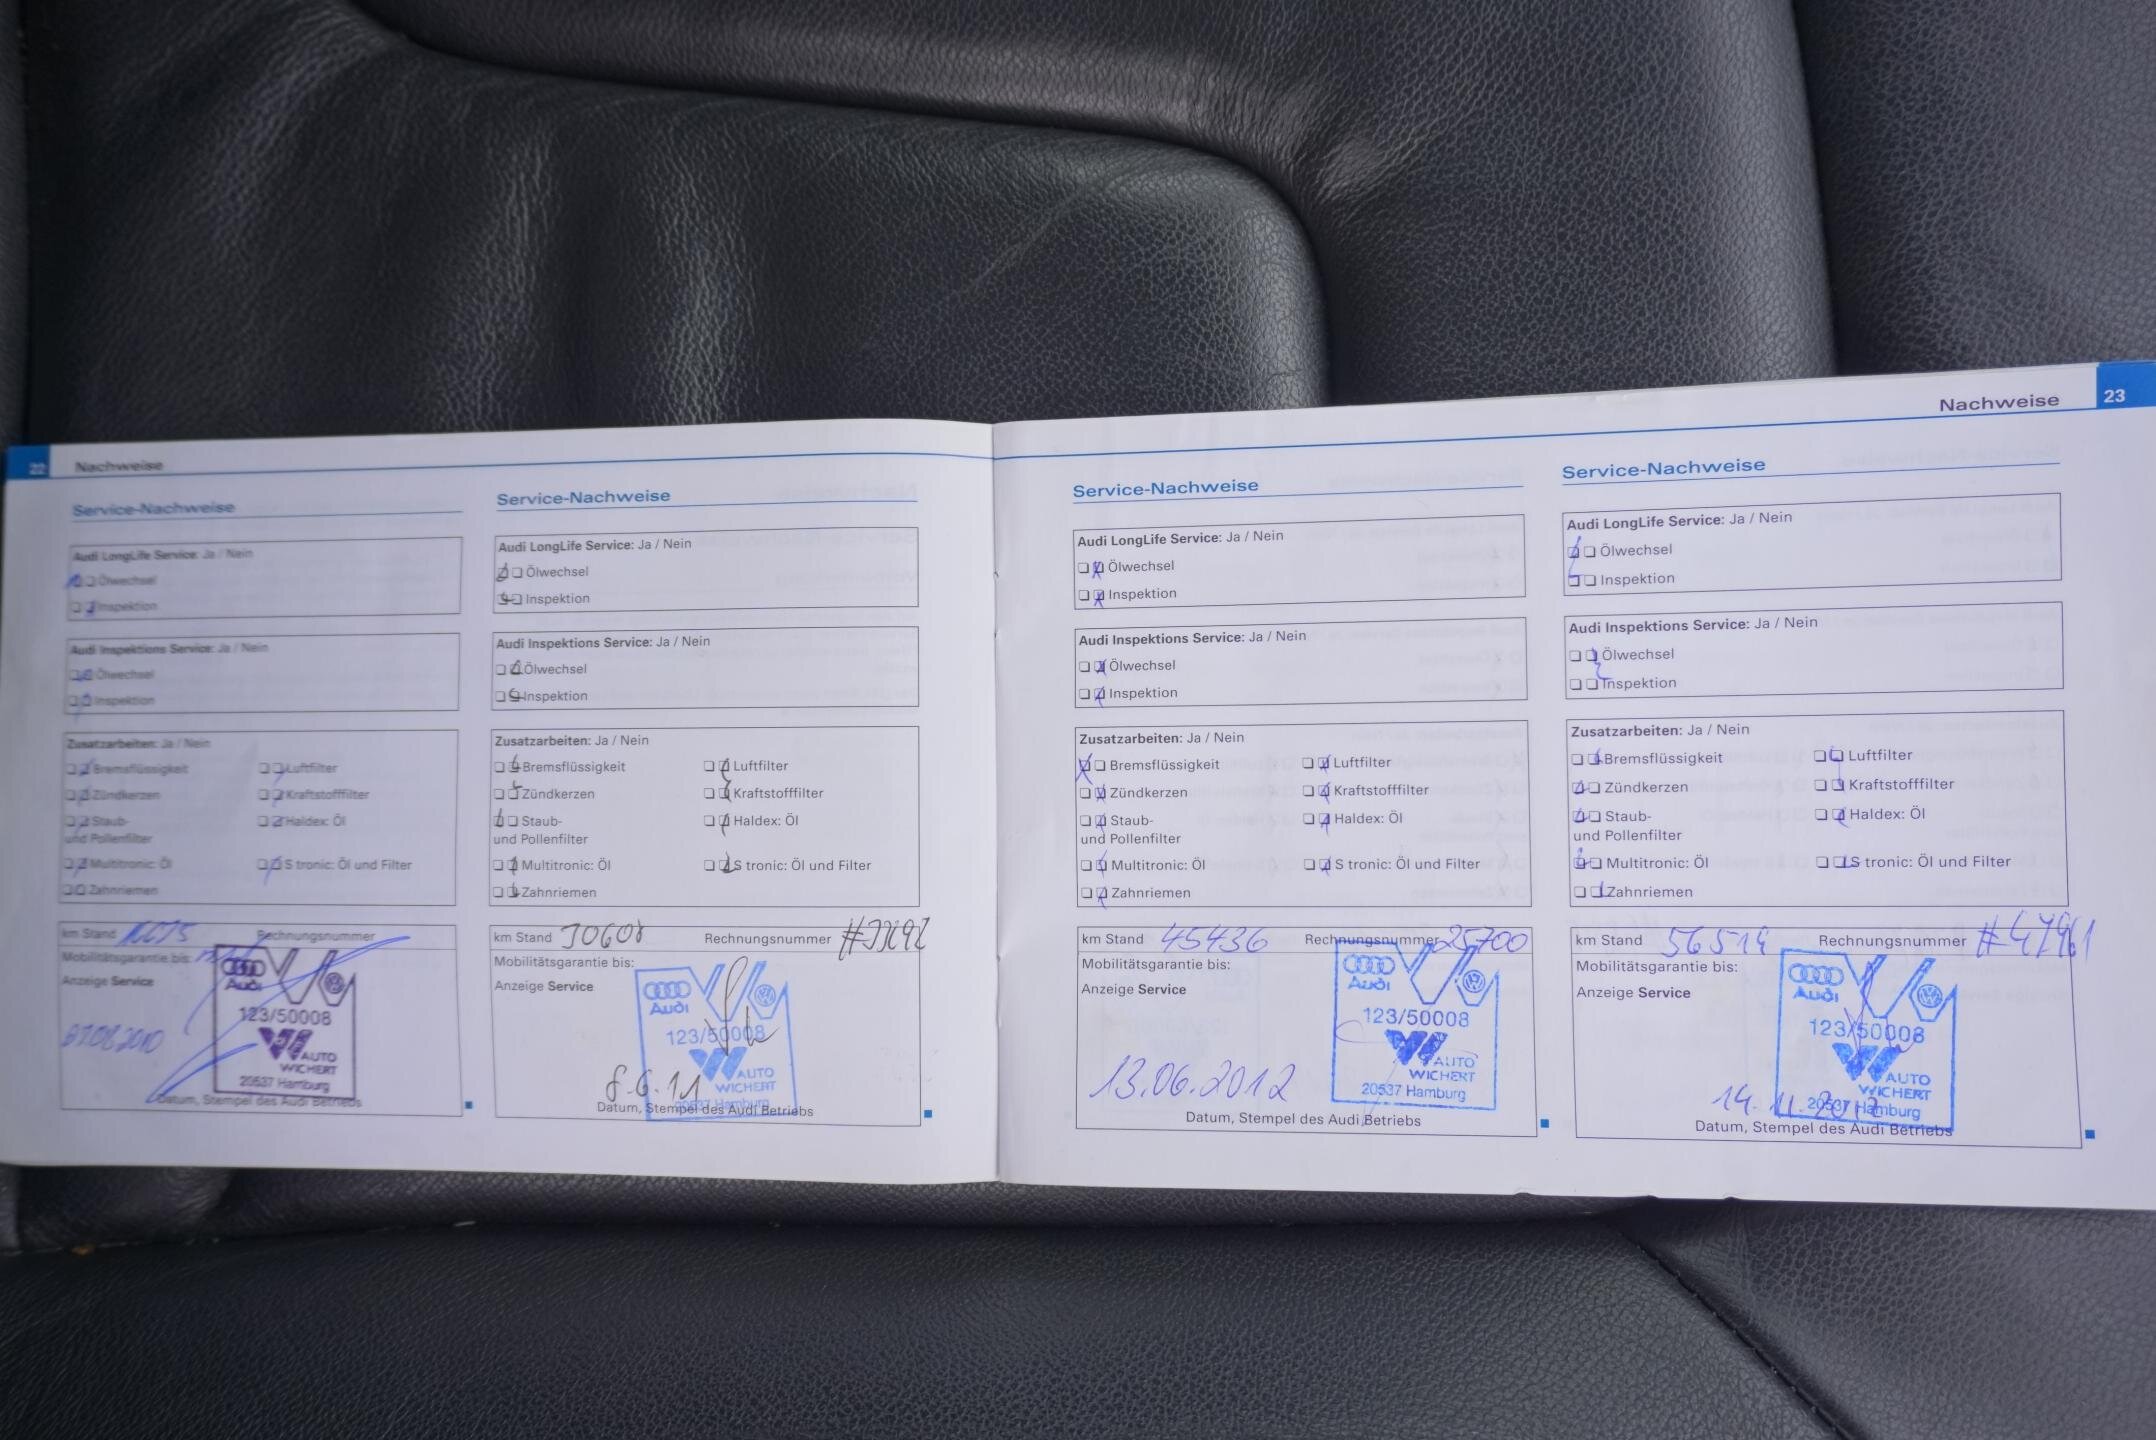 22 Nachweise
Service-Nachweise
Audi LongLife Service: Ja / Nein
Ölwechsel
Inspektion
Audi Inspektions Service: Ja / Nein
Ölwechsel
Inspektion
Zusatzarbeiten: Ja / Nein
Bremsflüssigkeit Luftfilter
Zündkerzen Kraftstofffilter
Staub- Haldex: Öl
und Pollenfilter
Multitronic: Öl S tronic: Öl und Filter
Zahnriemen
km Stand Rechnungsnummer
Mobilitätsgarantie bis:
Anzeige Service
Audi
123/50008
AUTO
WICHERT
20537 Hamburg
Datum, Stempel des Audi Betriebs
Service-Nachweise
Audi LongLife Service: Ja / Nein
Ölwechsel
Inspektion
Audi Inspektions Service: Ja / Nein
Ölwechsel
Inspektion
Zusatzarbeiten: Ja / Nein
Bremsflüssigkeit Luftfilter
Zündkerzen Kraftstofffilter
Staub- Haldex: Öl
und Pollenfilter
Multitronic: Öl S tronic: Öl und Filter
Zahnriemen
km Stand Rechnungsnummer
Mobilitätsgarantie bis:
Anzeige Service
Audi
123/50008
AUTO
WICHERT
20537 Hamburg
8.6.11
Datum, Stempel des Audi Betriebs
Nachweise 23
Service-Nachweise
Audi LongLife Service: Ja / Nein
Ölwechsel
Inspektion
Audi Inspektions Service: Ja / Nein
Ölwechsel
Inspektion
Zusatzarbeiten: Ja / Nein
Bremsflüssigkeit Luftfilter
Zündkerzen Kraftstofffilter
Staub- Haldex: Öl
und Pollenfilter
Multitronic: Öl S tronic: Öl und Filter
Zahnriemen
km Stand 45436 Rechnungsnummer 25700
Mobilitätsgarantie bis:
Anzeige Service
Audi
123/50008
AUTO
WICHERT
20537 Hamburg
13.06.2012
Datum, Stempel des Audi Betriebs
Service-Nachweise
Audi LongLife Service: Ja / Nein
Ölwechsel
Inspektion
Audi Inspektions Service: Ja / Nein
Ölwechsel
Inspektion
Zusatzarbeiten: Ja / Nein
Bremsflüssigkeit Luftfilter
Zündkerzen Kraftstofffilter
Staub- Haldex: Öl
und Pollenfilter
Multitronic: Öl S tronic: Öl und Filter
Zahnriemen
km Stand 56519 Rechnungsnummer #47961
Mobilitätsgarantie bis:
Anzeige Service
Audi
123/50008
AUTO
WICHERT
20537 Hamburg
14.11.2012
Datum, Stempel des Audi Betriebs